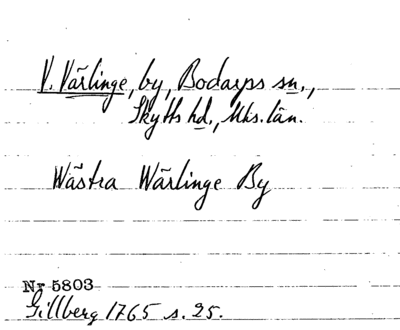 V. Värlinge, by, Bodarps sn.,
Skytts hd., Mhs. län.
Wästra Wärlinge By
Nr 5803
Gillberg 1765 s. 25.